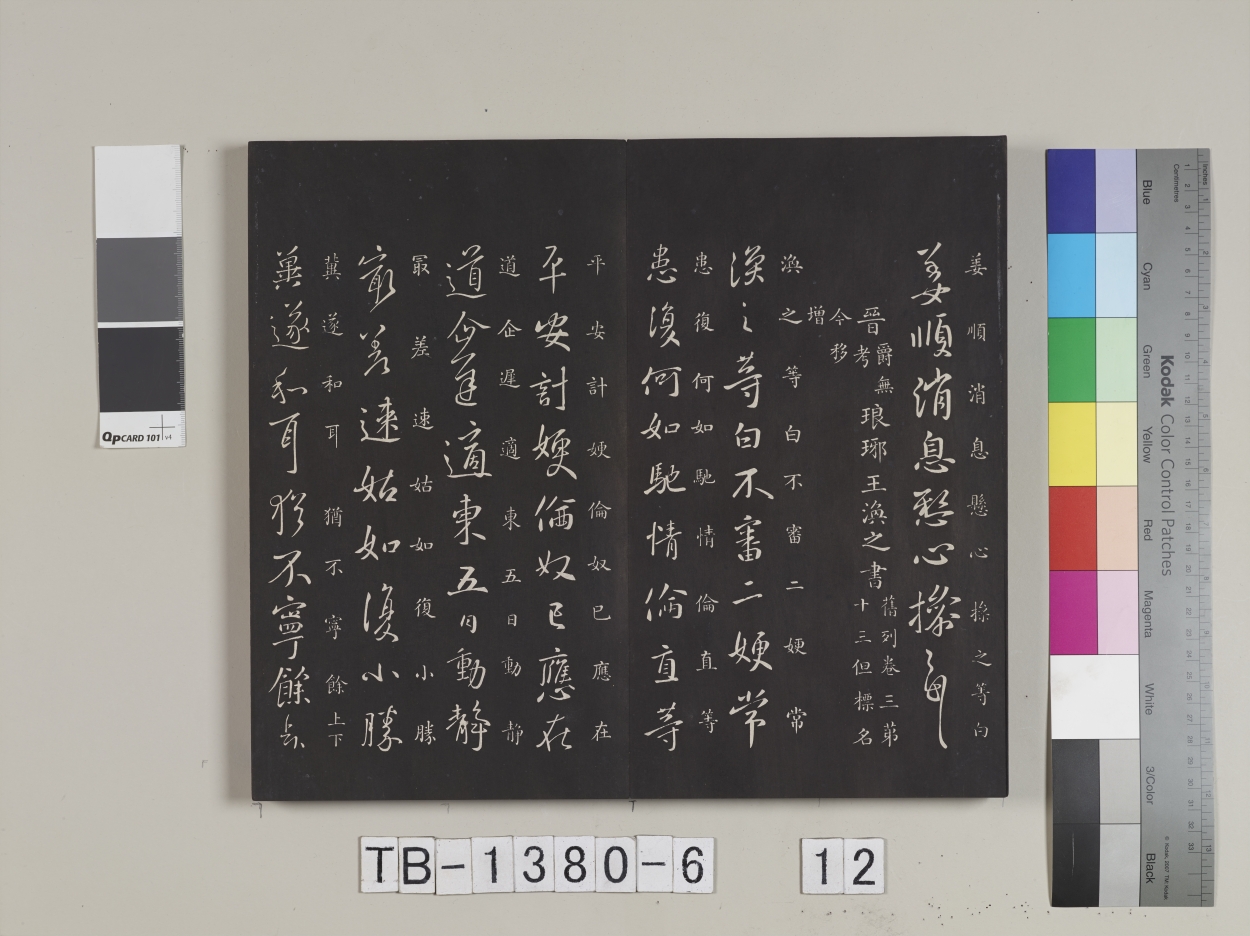 姜順消息懸心操之等白
姜順消息懸心操之等白
晉爵無考琅琊王渙之書舊列卷三第
十三但標名
今移
增
渙之等白不審二㛐常
渙之等白不審二㛐常
患復何如馳情倫直等
患復何如馳情倫直等
平安計㛐倫奴已應在
平安計㛐倫奴已應在
道企遲適東五日動靜
道企遲適東五日動靜
最差速姑如復小勝
最差速姑如復小勝
冀遂和耳猶不寧餘上下
冀遂和耳猶不寧餘上下
QPCARD 101 v4
Kodak Color Control Patches
Blue
Cyan
Green
Yellow
Red
Magenta
White
3/Color
Black
Inches
Centimetres
TB-1380-6 12